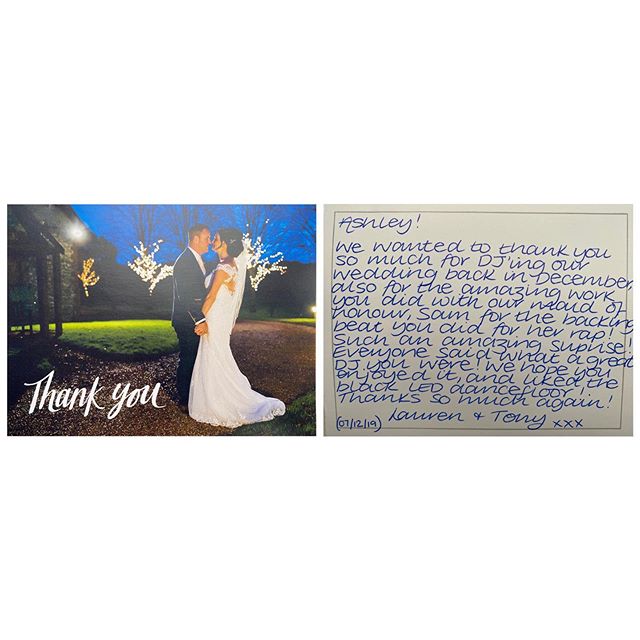 Thank you
Ashley!
We wanted to thank you
so much for DJ'ing our
wedding back in December,
also for the amazing work
you did with our maid of
honour, Sam for the backing
beat you did for her rap!
Such an amazing surprise!
Everyone said what a great
DJ you were! We hope you
enjoyed it, and liked the
black LED dancefloor!
Thanks so much again!
Lauren & Tony xxx
(07/12/19)